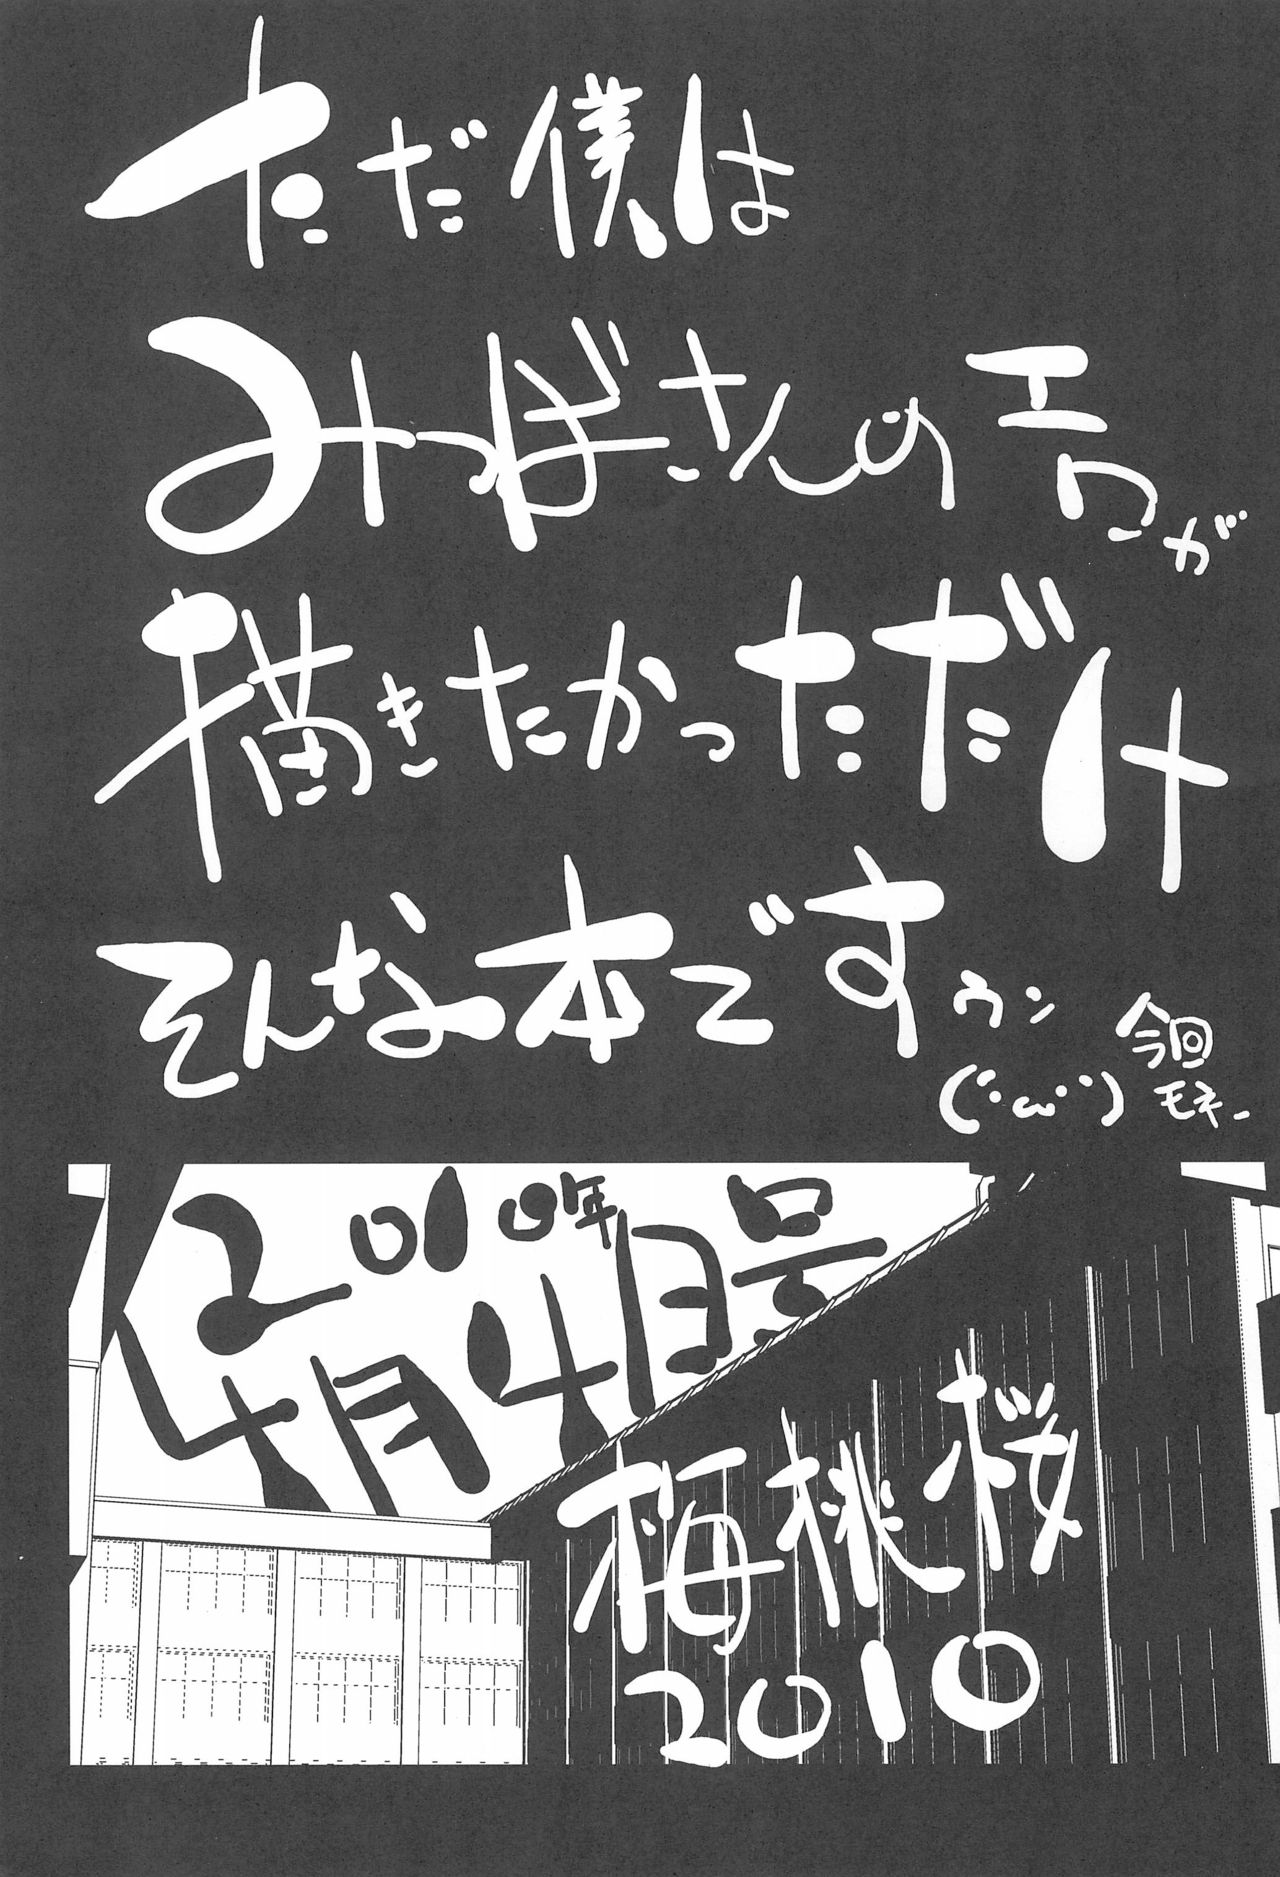 ただ僕は
みつばさんのエロが
描きたかっただけ
そんな本ですウン
(´・ω・`)
今回
モネー
2010年
4月号
梅桃桜
2010